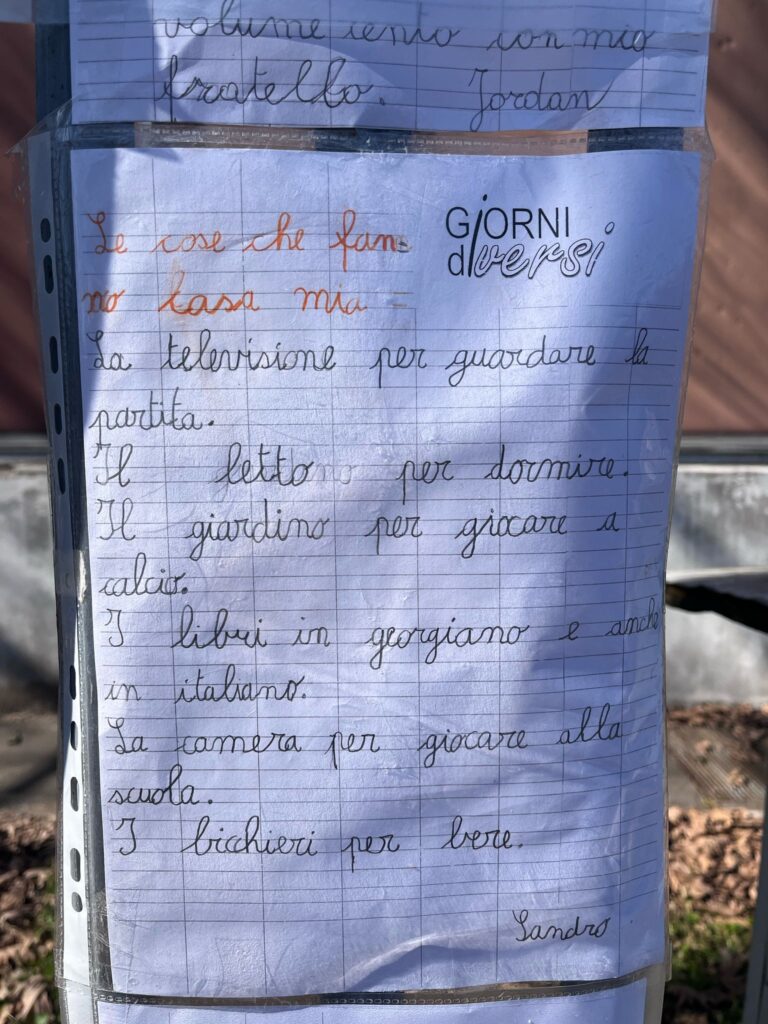 volume cento con mio
fratello. Jordan
Le cose che fan=
no casa mia =
GiORNI
diversi
La televisione per guardare la
partita.
Il letto per dormire.
Il giardino per giocare a
calcio.
I libri in georgiano e anche
in italiano.
La camera per giocare alla
scuola.
I bicchieri per bere.
Sandro